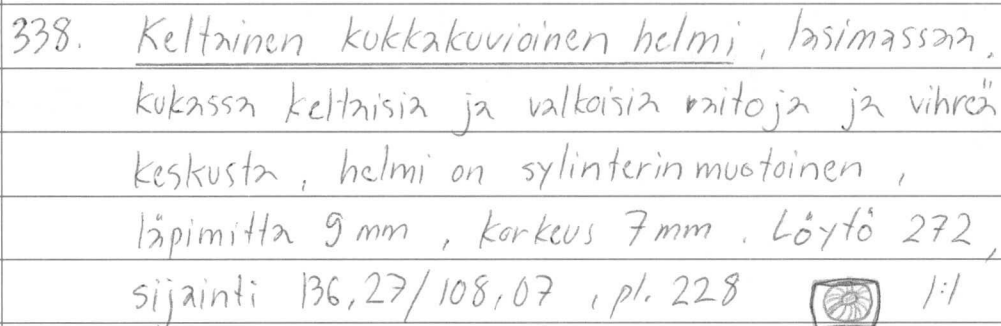 338. Keltainen kukkakuvioinen helmi, lasimassaa.
kukassa keltaisia ja valkoisia raitoja ja vihreä
keskusta, helmi on sylinterin muotoinen,
läpimitta 9 mm, korkeus 7 mm. Löytö 272,
sijainti 136,27/108,07, pl. 228 1:1